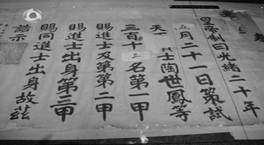 皇帝制曰光緒二十年
月二十一日策試
天 士陶世鳳等
三百十 名第一甲
賜進士及第第二甲
賜進士出身第三甲
賜同進士出身故茲
誥示